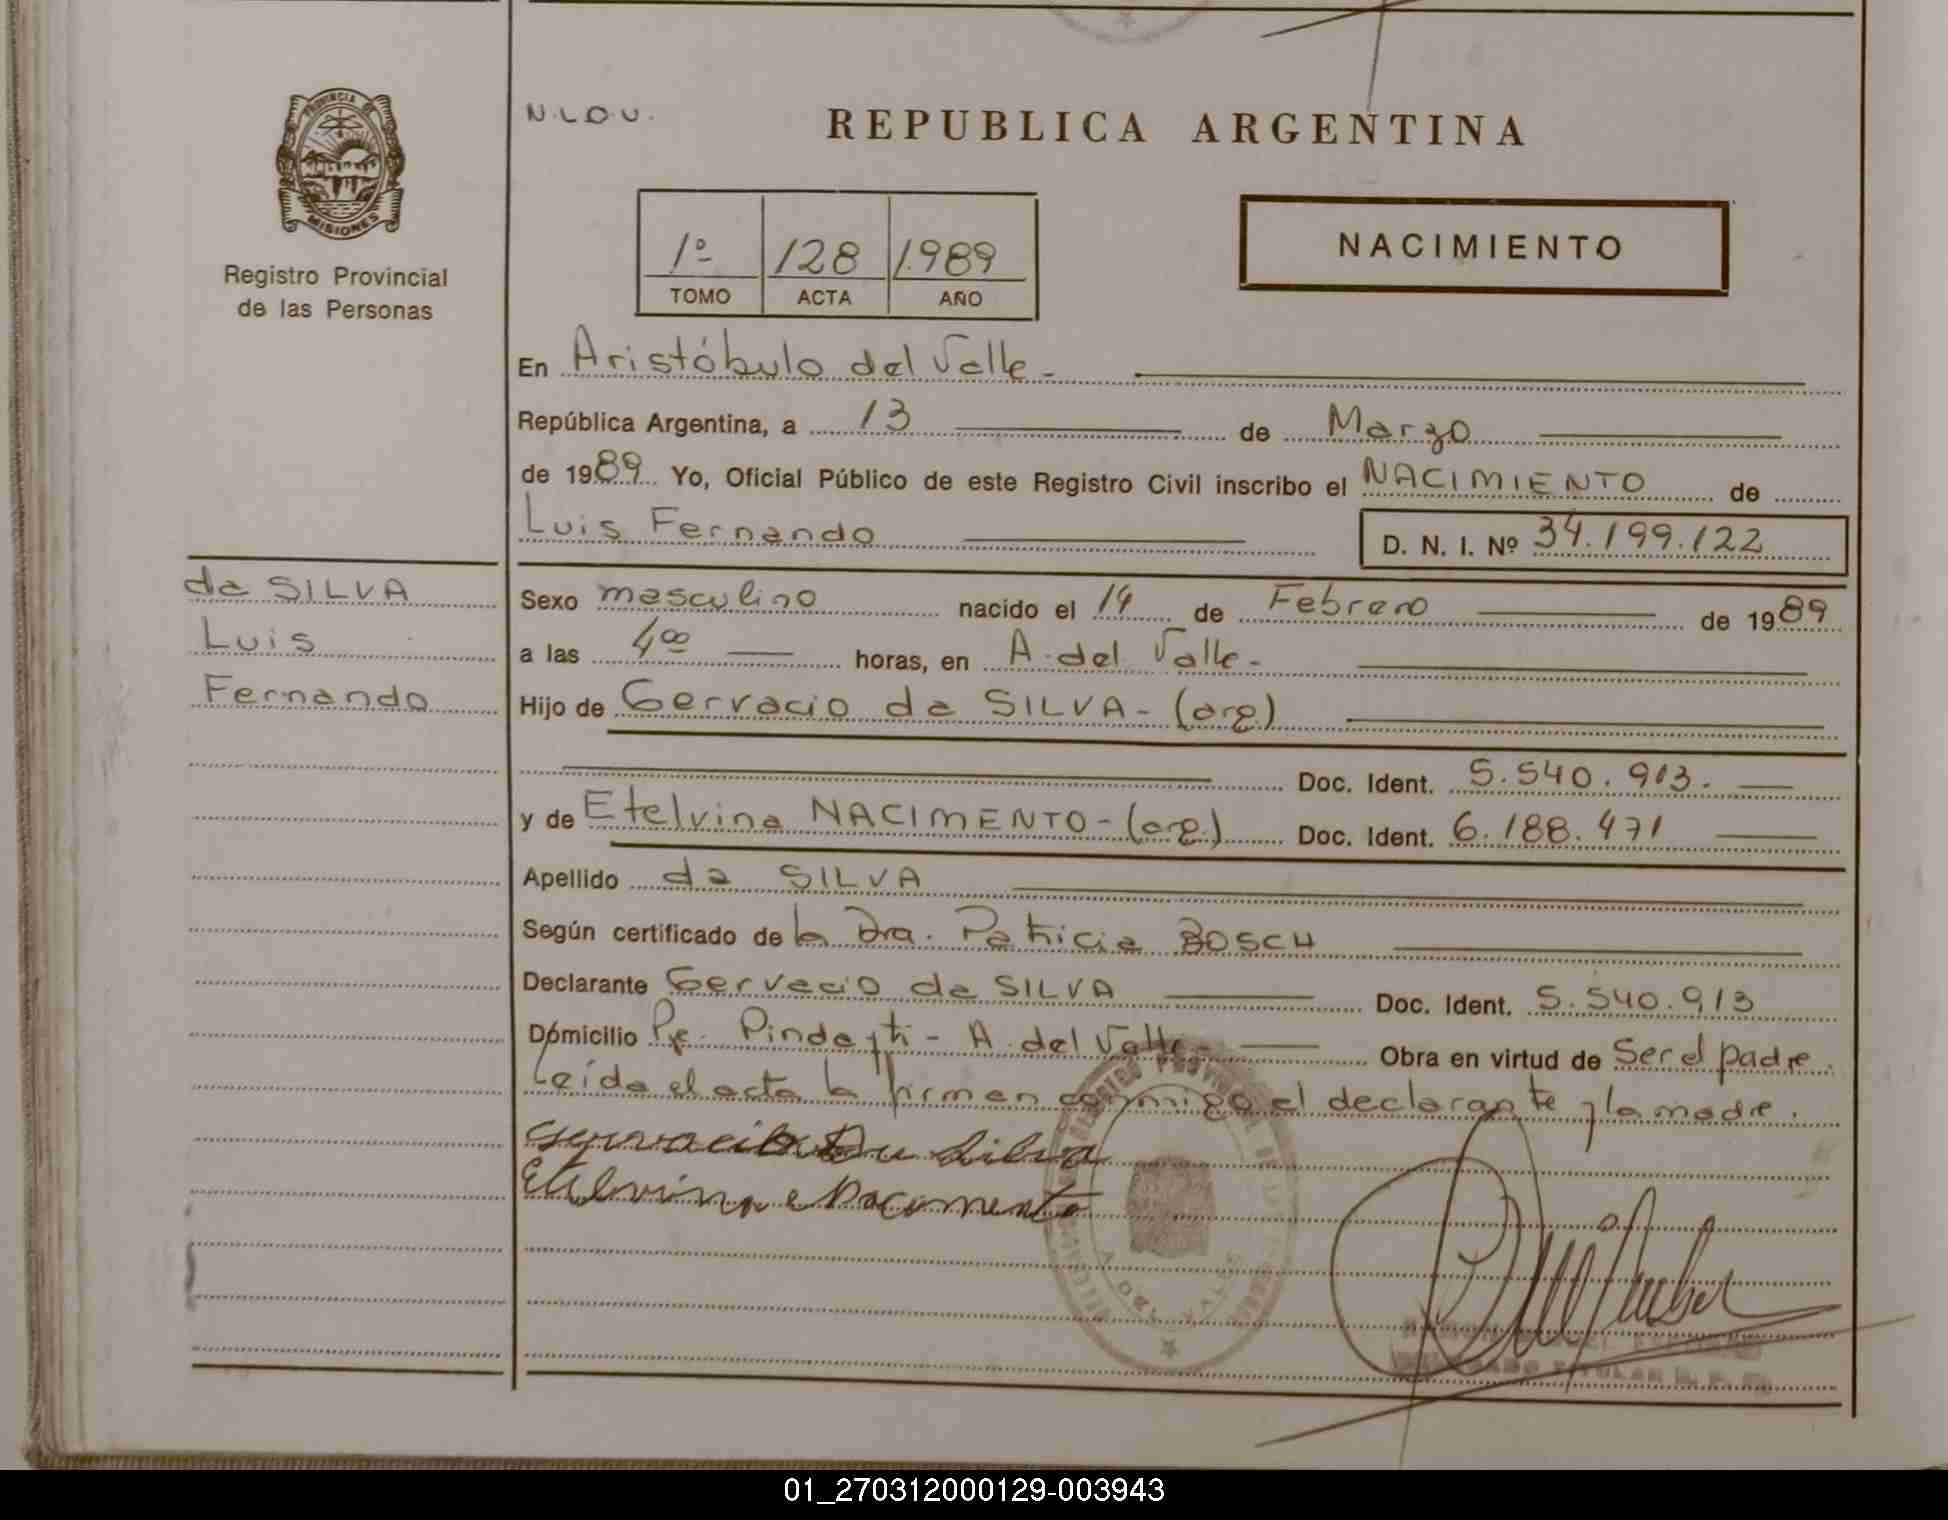 PROVINCIA DE
MISIONES
Registro Provincial
de las Personas
N.L.O.U.
REPUBLICA ARGENTINA
1º 128 1.989
TOMO ACTA AÑO
NACIMIENTO
En Aristóbulo del Valle -
República Argentina, a 13 de Marzo
de 1989. Yo, Oficial Público de este Registro Civil inscribo el NACIMIENTO de
Luis Fernando D. N. I. Nº 34.199.122
da SILVA
Luis
Fernando
Sexo masculino nacido el 14 de Febrero de 1989
a las 4⁰⁰ horas, en A. del Valle -
Hijo de Gervacio da SILVA - (arg)
Doc. Ident. 5.540.913.
y de Etelvina NACIMENTO - (arg.) Doc. Ident. 6.188.471
Apellido da SILVA
Según certificado de la Dra. Patricia BOSCH
Declarante Gervacio da SILVA Doc. Ident. 5.540.913
Domicilio Pje. Pindayti - A. del Valle - Obra en virtud de Ser el padre.
Leída el acta la firman conmigo el declarante y la madre.
Gervacio Da Silva
Etelvina Nacimento
01_270312000129-003943